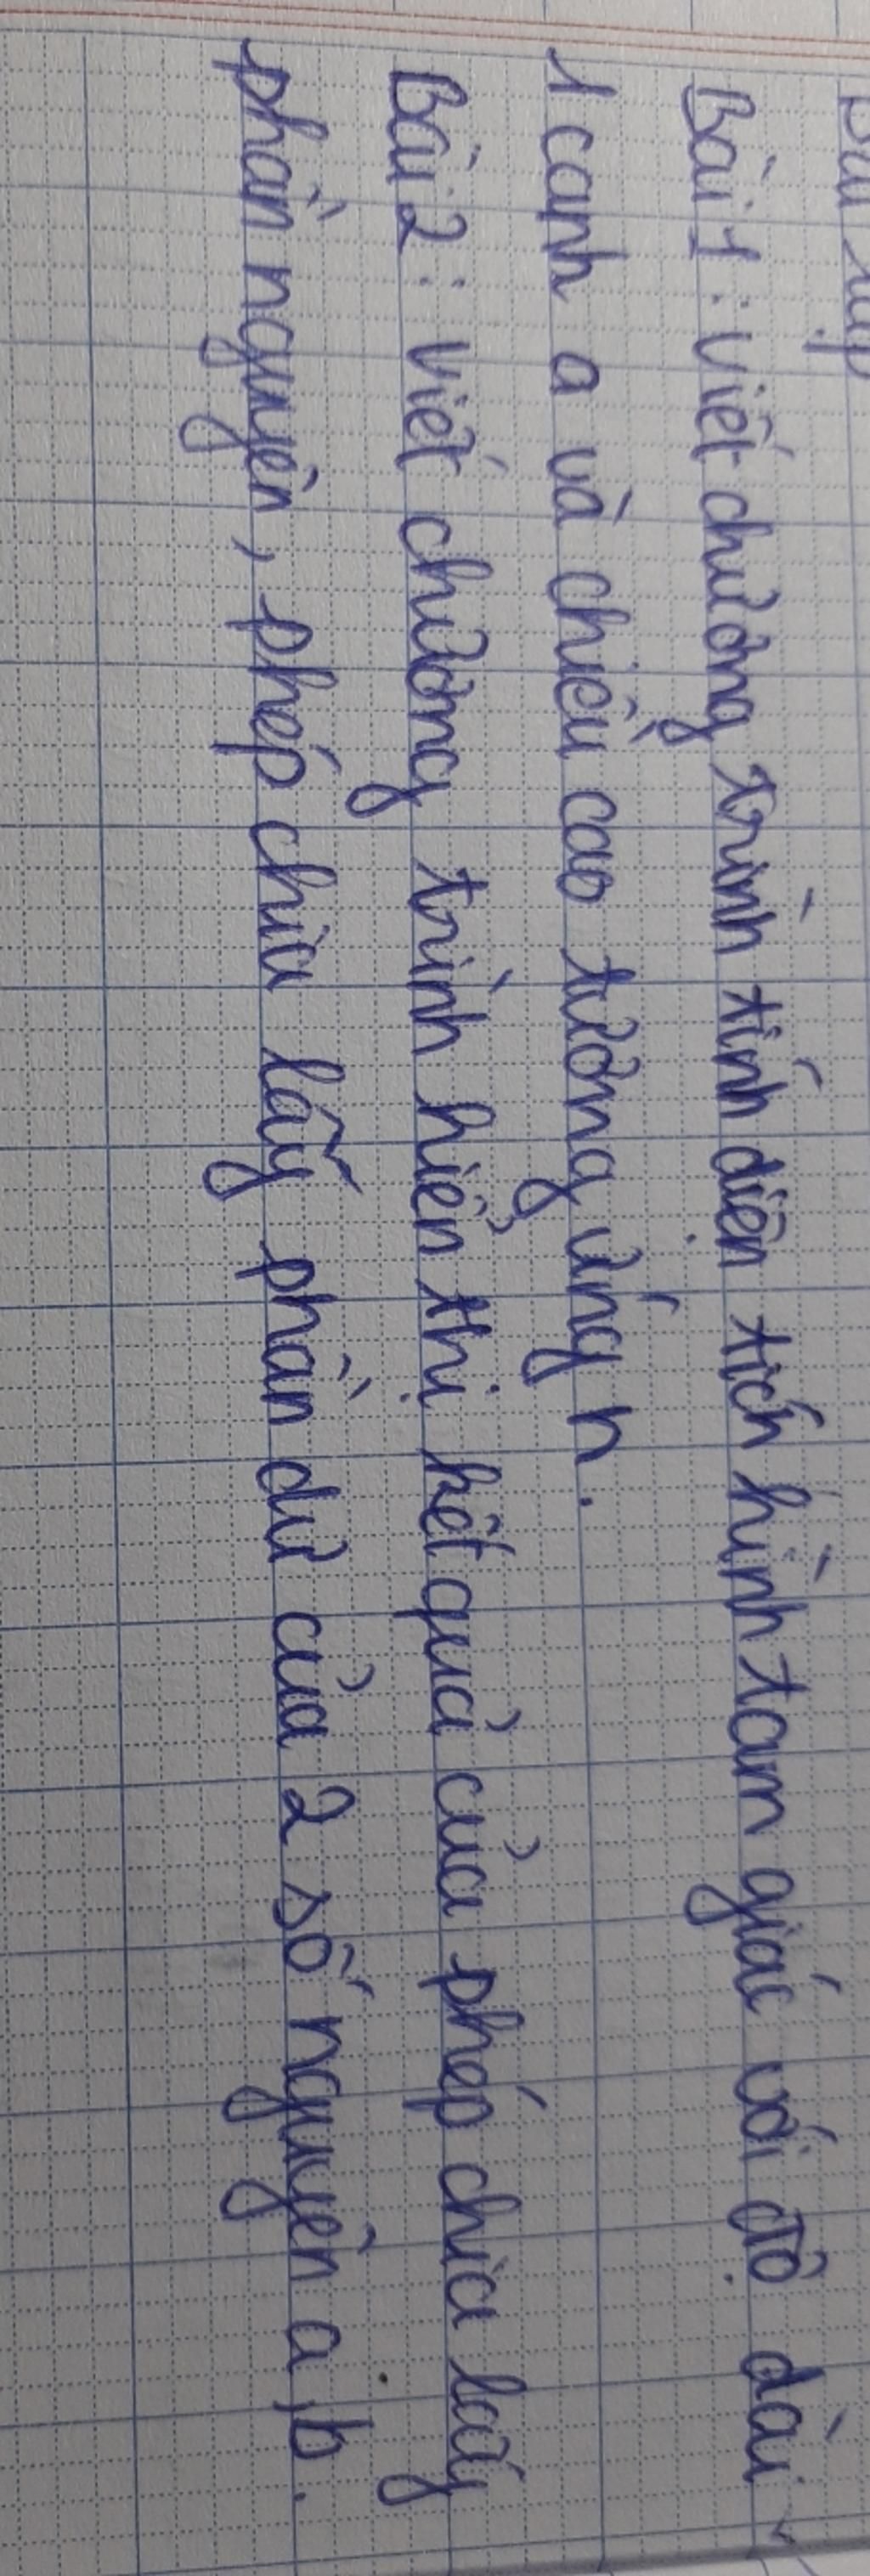 Bài tập
Bài 1: Viết chương trình tính diện tích hình tam giác với độ dài
1 cạnh a và chiều cao tương ứng h.
Bài 2: Viết chương trình hiển thị kết quả của phép chia lấy
phần nguyên, phép chia lấy phần dư của 2 số nguyên a, b.